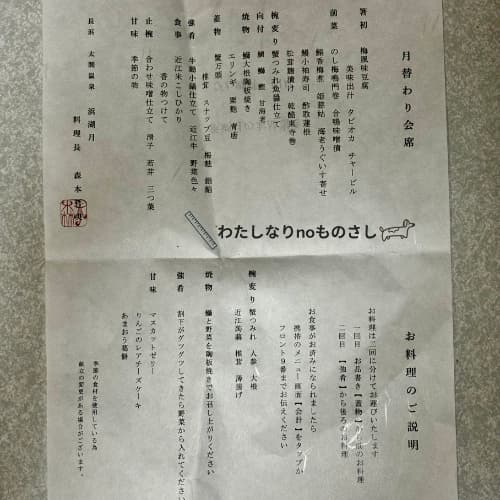 月替わり会席
箸初 梅風味豆腐
美味出汁 タピオカ チャービル
前菜 のし梅鳴門巻 合鴨味噌漬
鰯香梅煮 姫慈姑 海老うぐいす寄せ
鯛小袖寿司 酢取蓮根
松茸麹漬け 乾酪東寺巻
椀変り 蟹つみれ魚翁仕立て
向付 鯛 鰤 鮪 甘海老
焼物 鰤大根陶板焼き
エリンギ 粟麩 青唐
蓋物 蟹万頭
椎茸 スナップ豆 梅麩 銀餡
強肴 牛動小鍋仕立て 近江牛 野菜色々
食事 近江米こしひかり
香の物つけて
止椀 合わせ味噌仕立て 滑子 若芽 三つ葉
甘味 季節の物
長浜 太閤温泉 浜湖月
料理長 森本
わたしなりnoものさし
お料理のご説明
お料理は二回に分けてお運びいたします
一回目 お品書き【蓋物】から前のお料理
二回目 【強肴】から後ろのお料理
お食事がお済みになられましたら
携帯のメニュー画面【会計】をタップか
フロント9番までお伝えください
椀変り 蟹つみれ 人参 大根
近江蒟蒻 椎茸 薄揚げ
焼物 鰤と野菜を陶板焼きでお召し上がりください
強肴 割下がグツグツしてきたら野菜から入れてください
甘味 マスカットゼリー
りんごのレアチーズケーキ
あまおう葛餅
季節の食材を使用している為
献立の変更がある場合がございます。